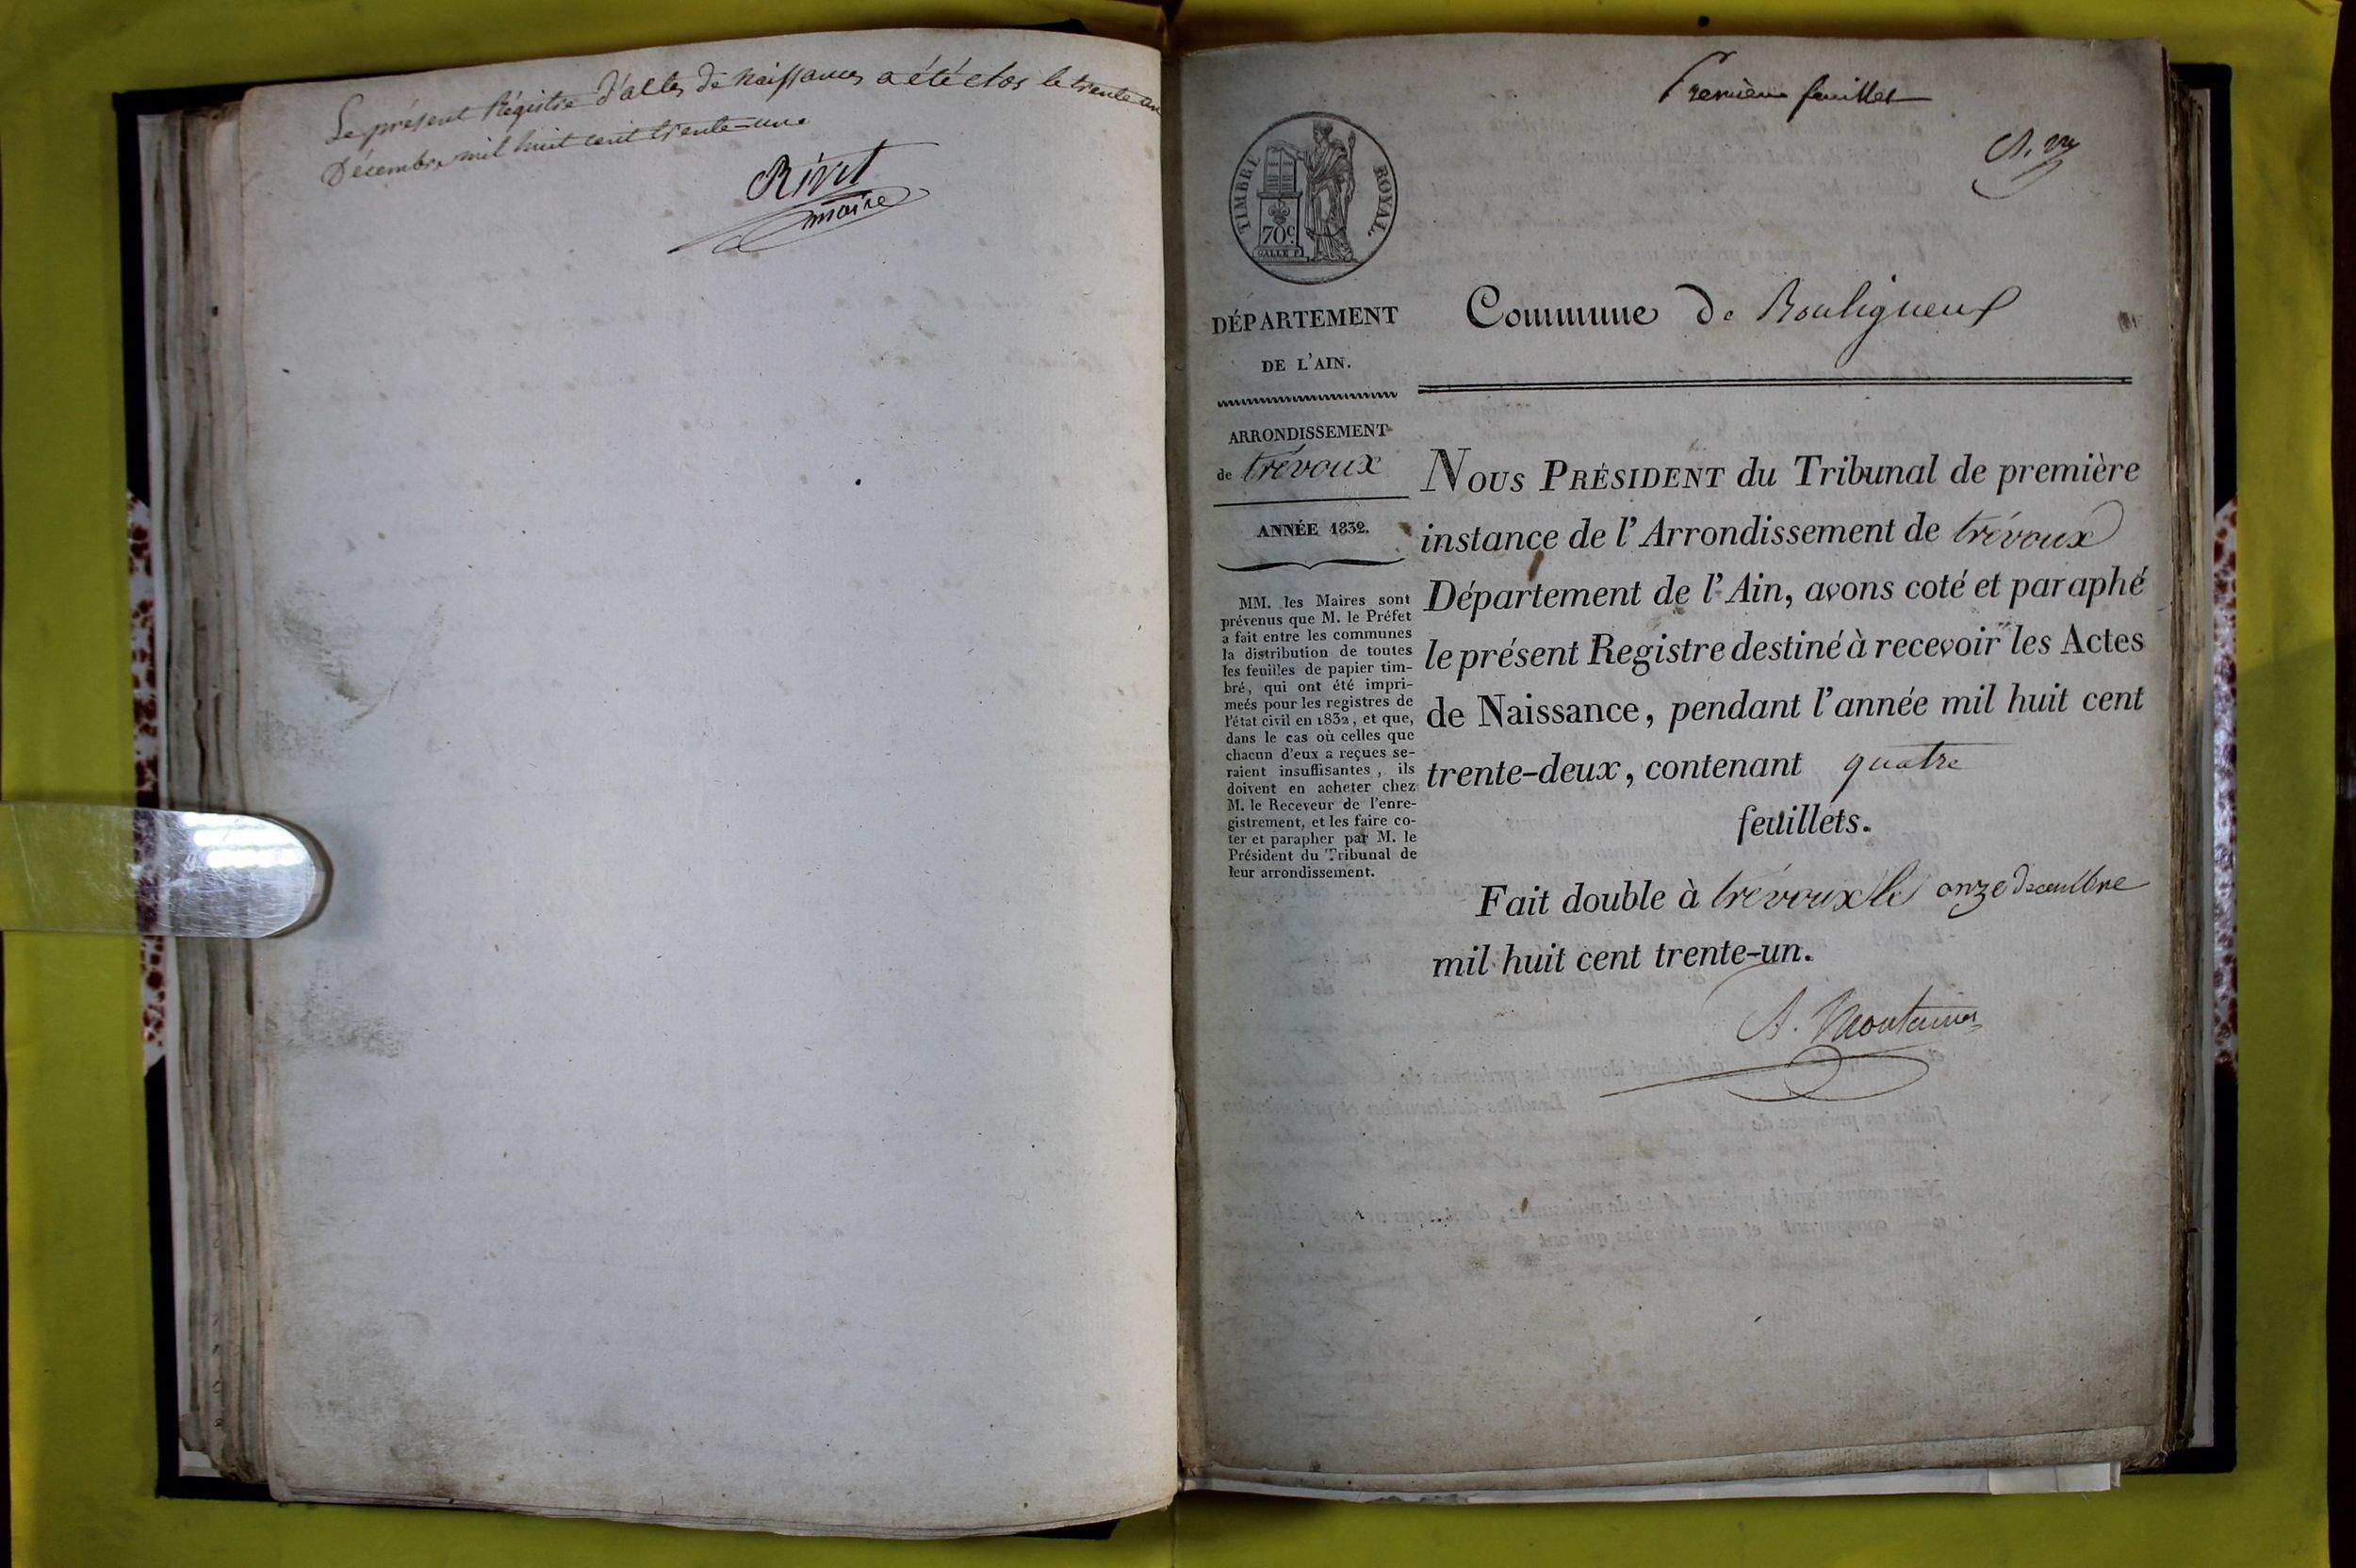 Le présent Régistre d'actes de Naissances a été clos le trente un
Décembre mil huit cent trente-une
Rivet
maire
Premier feuillet
TIMBRE ROYAL
70c
DÉPARTEMENT
DE L'AIN.
ARRONDISSEMENT
de trévoux
ANNÉE 1832.
MM. les Maires sont
prévenus que M. le Préfet
a fait entre les communes
la distribution de toutes
les feuilles de papier tim-
bré, qui ont été impri-
meés pour les registres de
l'état civil en 1832, et que,
dans le cas où celles que
chacun d'eux a reçues se-
raient insuffisantes, ils
doivent en acheter chez
M. le Receveur de l'enre-
gistrement, et les faire co-
ter et parapher par M. le
Président du Tribunal de
leur arrondissement.
Commune De Bouligneux
NOUS PRÉSIDENT du Tribunal de première
instance de l'Arrondissement de trévoux
Département de l'Ain, avons coté et paraphé
le présent Registre destiné à recevoir les Actes
de Naissance, pendant l'année mil huit cent
trente-deux, contenant quatre
feuillets.
Fait double à trévoux le onze decembre
mil huit cent trente-un.